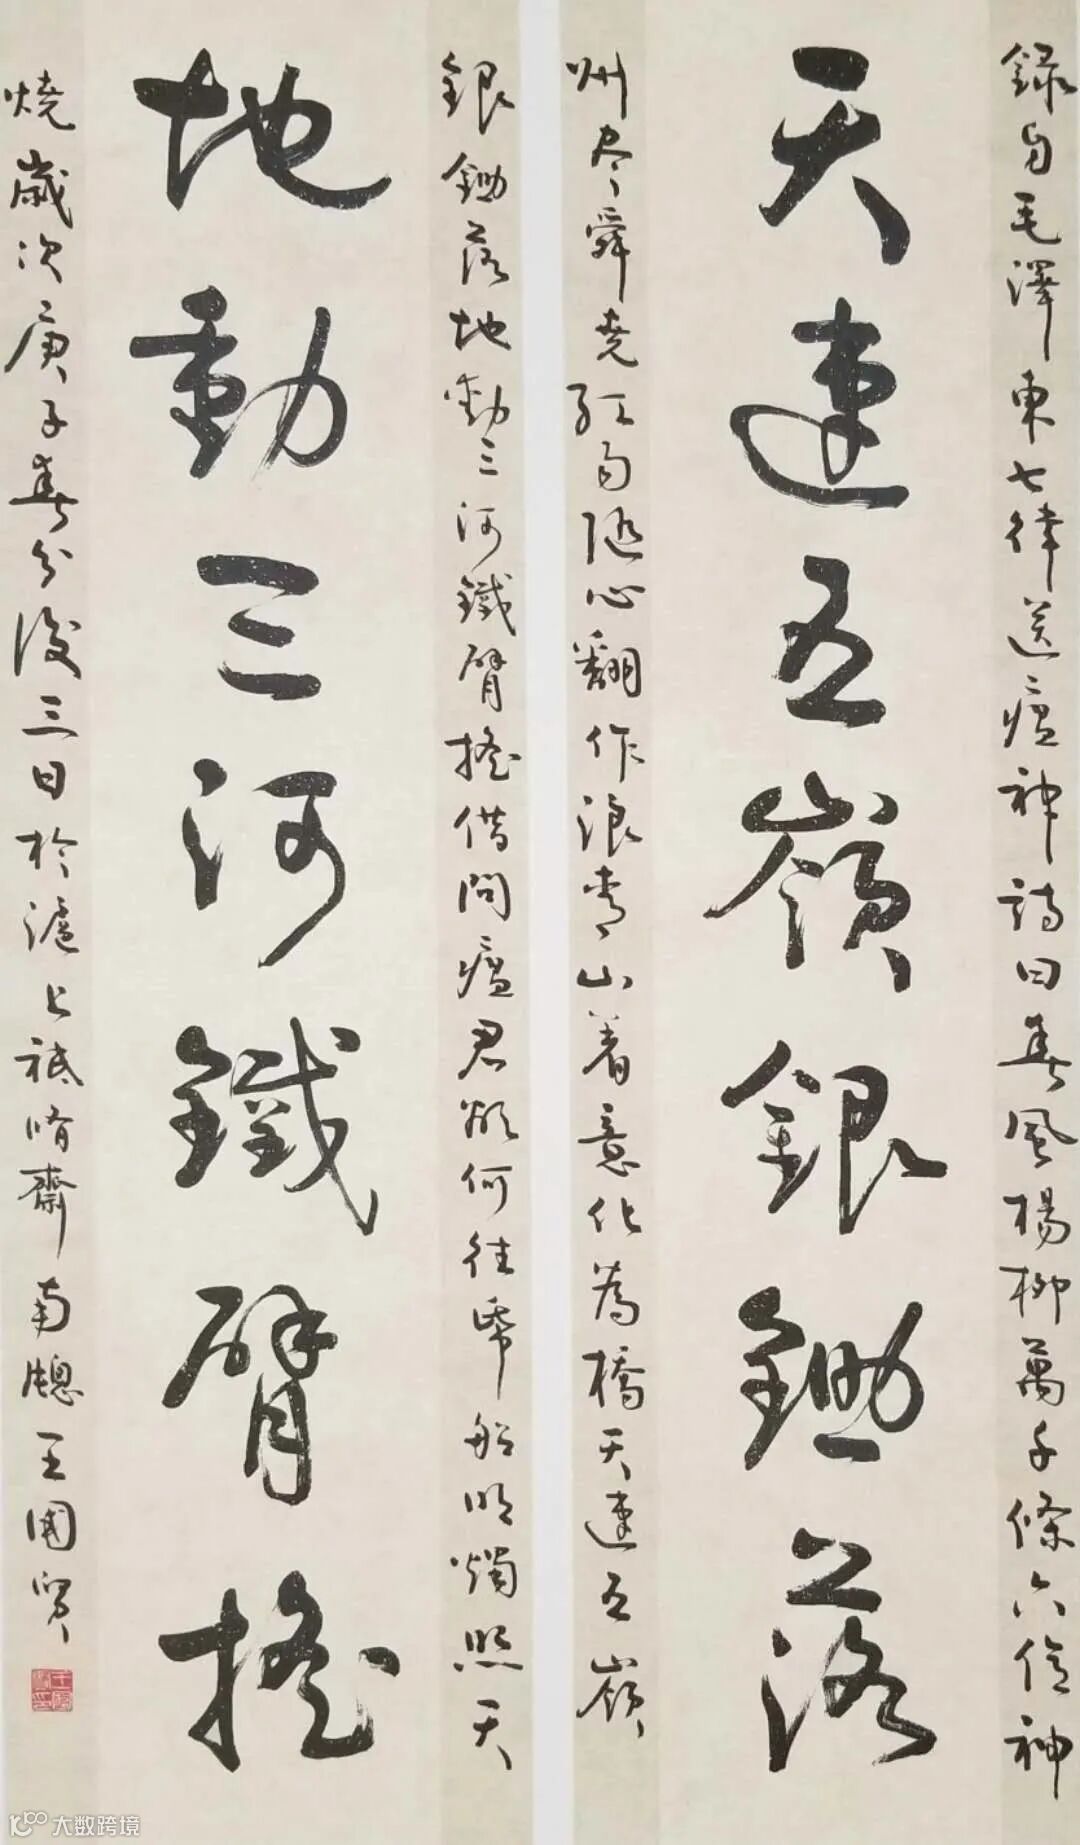 錄自毛澤東七律送瘟神詩曰春風楊柳萬千條六億神
天連五嶺銀鋤落
州尽舜堯紅雨隨心翻作浪青山着意化為橋天連五嶺
銀鋤落地動三河鐵臂搖借問瘟君欲何往帋船明燭照天
地動三河鐵臂搖
燒歲次庚子春分後三日於滬上祗脩齋南牕王國賢
大数跨境